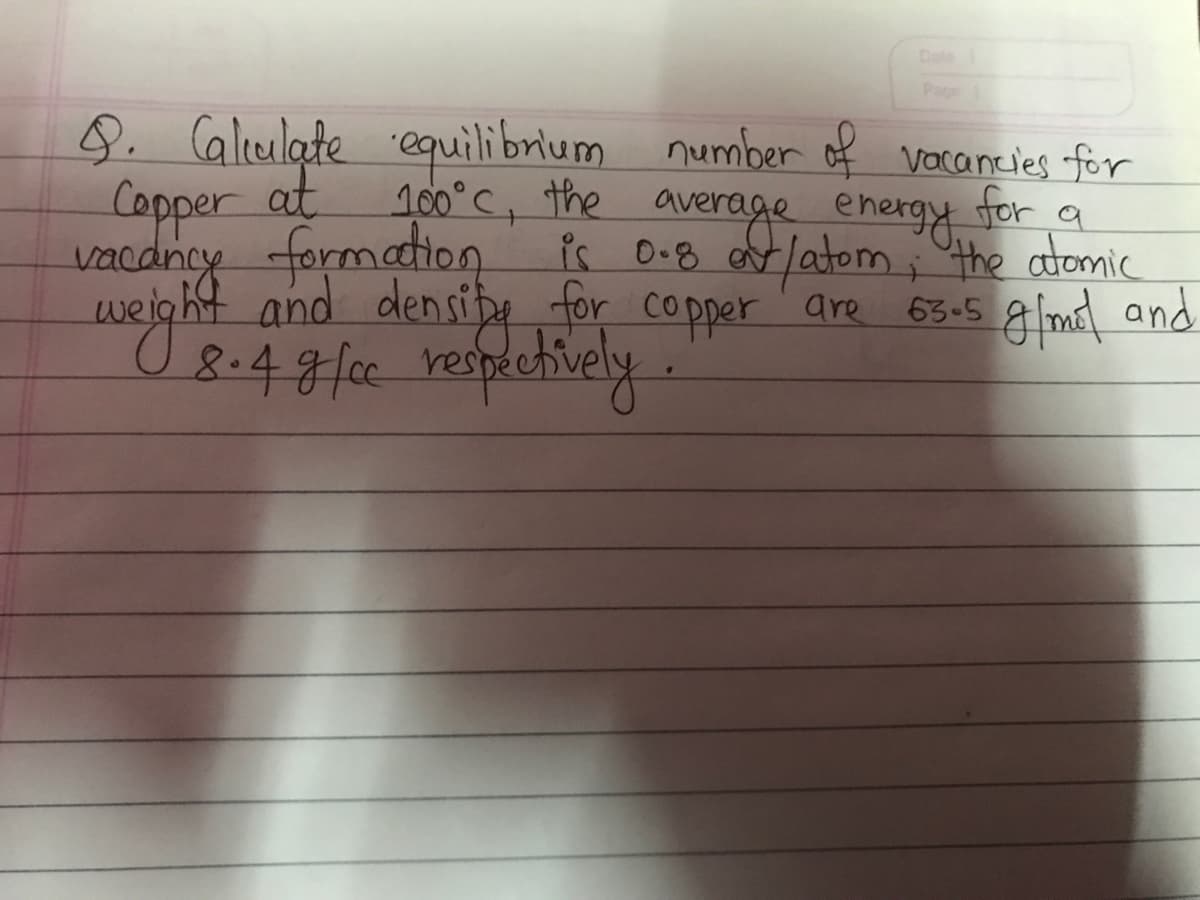 Date
Page
Q. Calculate equilibrium number of vacancies for
Copper at 100°C, the average energy for a
vacancy formation is 0.8 eV/atom; the atomic
weight and density for copper are 63.5 g/mol and
8.4 g/cc respectively.